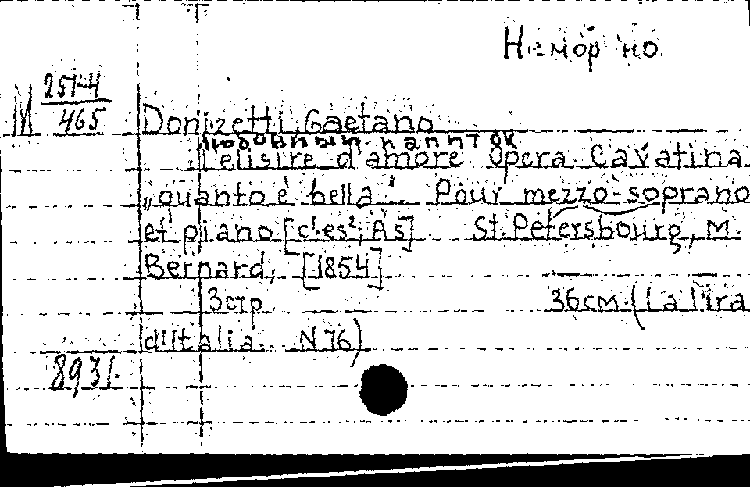 Неморино
М 251-4
465
Donizetti, Gaetano
Любовный напиток
L'elisire d'amore opera. Cavatina
„quanto è bella". Pour mezzo-soprano
et piano [c¹-es², As] St. Petersbourg, M.
Bernard, [1854]
3 стр 36 см. (La lira
d'Italia. N 76)
893/-